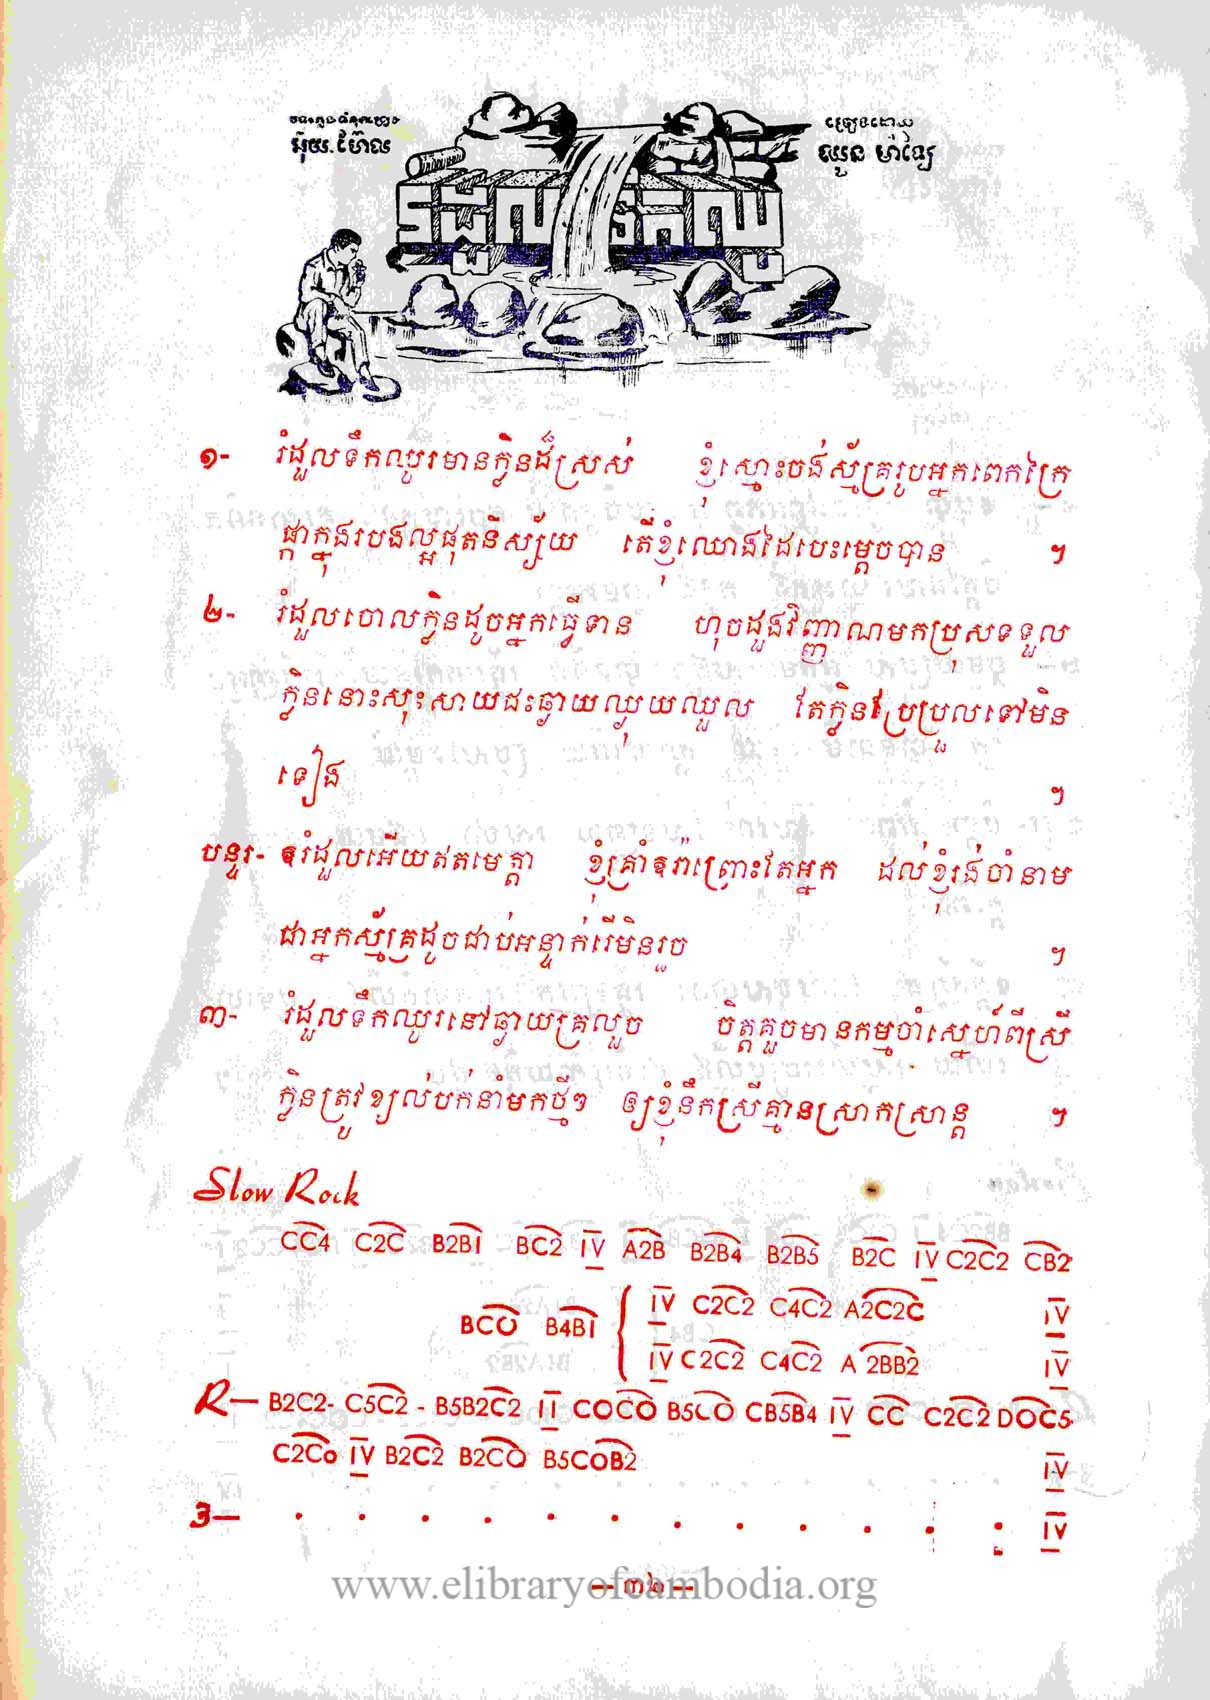 បទភ្លេងនិពន្ធ
អ៊ុយ.ហ៊ែល
ច្រៀងដោយ
ឈួន ម៉ាឡៃ
រំដួលទឹកឈូ
១- រំដួលទឹកឈូរមានក្លិនដ៏ស្រស់ ខ្ញុំស្មោះចង់ស្ម័គ្ររូបអ្នកពេកក្រៃ
ផ្កាក្នុងរបងល្អផុតនិស្ស័យ តើខ្ញុំឈោងដៃបេះម្តេចបាន ។
២- រំដួលចោលក្លិនដូចអ្នកធ្វើទាន ហុចដួងវិញ្ញាណមកប្រុសទទួល
ក្លិននោះសុះសាយជះឆ្ងាយឈ្ងុយឈួល តែក្លិនប្រែប្រួលទៅមិន
ទៀង ។
បន្ទរ- ឧរំដួលអើយឥតមេត្តា ខ្ញុំគ្រាំឧរ៉ាព្រោះតែអ្នក ដល់ខ្ញុំរង់ចាំនាម
ជាអ្នកស្ម័គ្រដូចជាប់អន្ទាក់រើមិនរួច ។
៣- រំដួលទឹកឈូរនៅឆ្ងាយគ្រលួច ចិត្តគួចមានកម្មចាំស្នេហ៍ពីស្រី
ក្លិនត្រូវខ្យល់បក់នាំមកថ្មីៗ ឲ្យខ្ញុំនឹកស្រីគ្មានស្រាកស្រាន្ត ។
Slow Rock
CC4 C2C B2B1 BC2 IV A2B B2B4 B2B5 B2C IV C2C2 CB2
BCO B4B1 { IV C2C2 C4C2 A2C2C IV
IV C2C2 C4C2 A 2BB2 IV
R— B2C2- C5C2 - B5B2C2 II COCO B5CO CB5B4 IV CC C2C2 DOC5
C2Co IV B2C2 B2CO B5COB2 IV
3— . . . . . . . . . . . . IV
— ៣៦ —
www.elibraryofcambodia.org